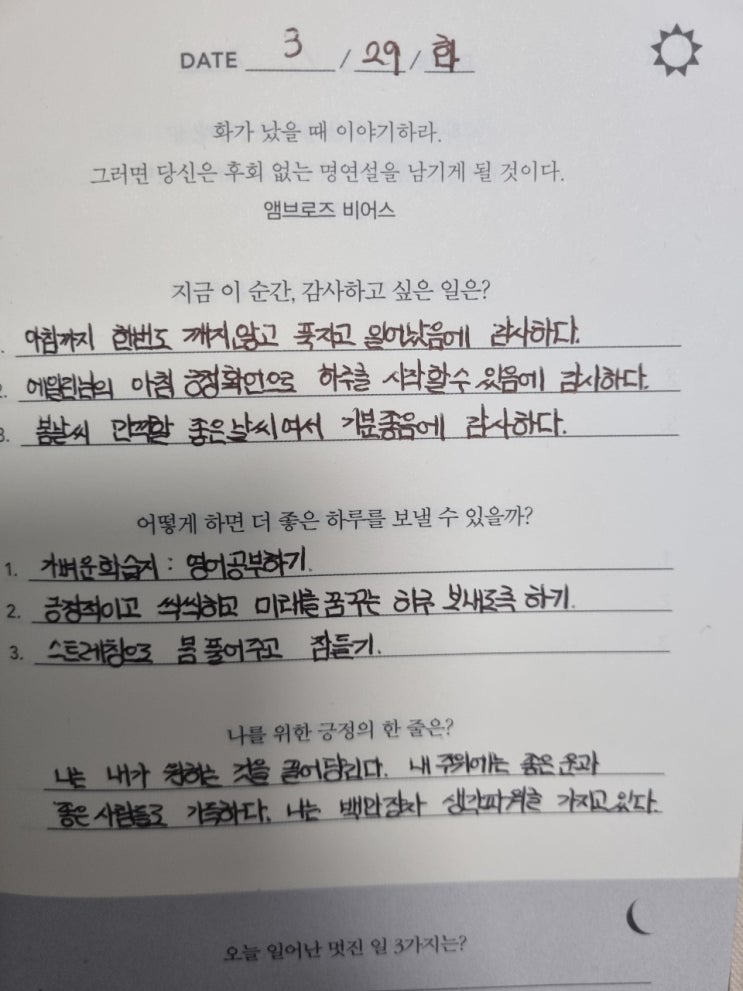 DATE 3 / 29 / 화
화가 났을 때 이야기하라.
그러면 당신은 후회 없는 명연설을 남기게 될 것이다.
앰브로즈 비어스
지금 이 순간, 감사하고 싶은 일은?
아침까지 한번도 깨지않고 푹자고 일어났음에 감사하다.
2. 에일린님의 아침 긍정확언으로 하루를 시작할수 있음에 감사하다.
3. 봄날씨 만끽할 좋은날씨여서 기분좋음에 감사하다.
어떻게 하면 더 좋은 하루를 보낼 수 있을까?
1. 가벼운학습지 : 영어공부하기.
2. 긍정적이고 씩씩하고 미래를 꿈꾸는 하루 보내도록 하기.
3. 스트레칭으로 몸 풀어주고 잠들기.
나를 위한 긍정의 한 줄은?
나는 내가 원하는 것을 끌어당긴다. 내 주위에는 좋은 운과
좋은 사람들로 가득하다. 나는 백만장자 생각파워를 가지고있다.
오늘 일어난 멋진 일 3가지는?